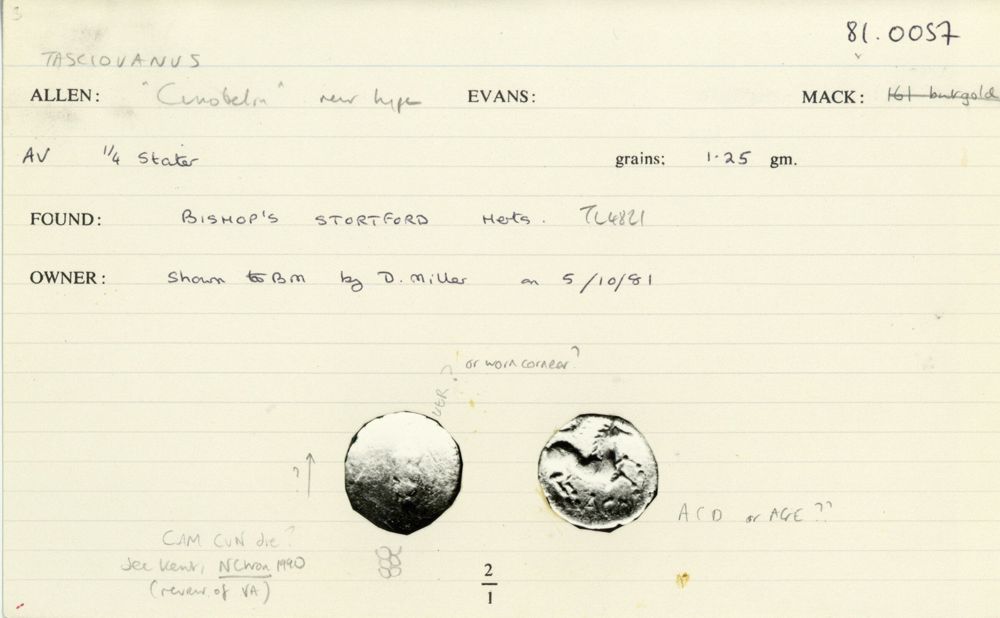 3
81.0057
TASCIOVANUS
ALLEN: "Cunobelin" new type EVANS: MACK: 161 but gold
AV 1/4 Stater grains: 1.25 gm.
FOUND: BISHOP'S STORTFORD Herts. TL4821
OWNER: Shown to BM by D. Miller on 5/10/81
VER? or worn corner?
?
ACD or AGE??
CAM CUN die?
See Kent, NChron 1990
(review of VA)
2
1